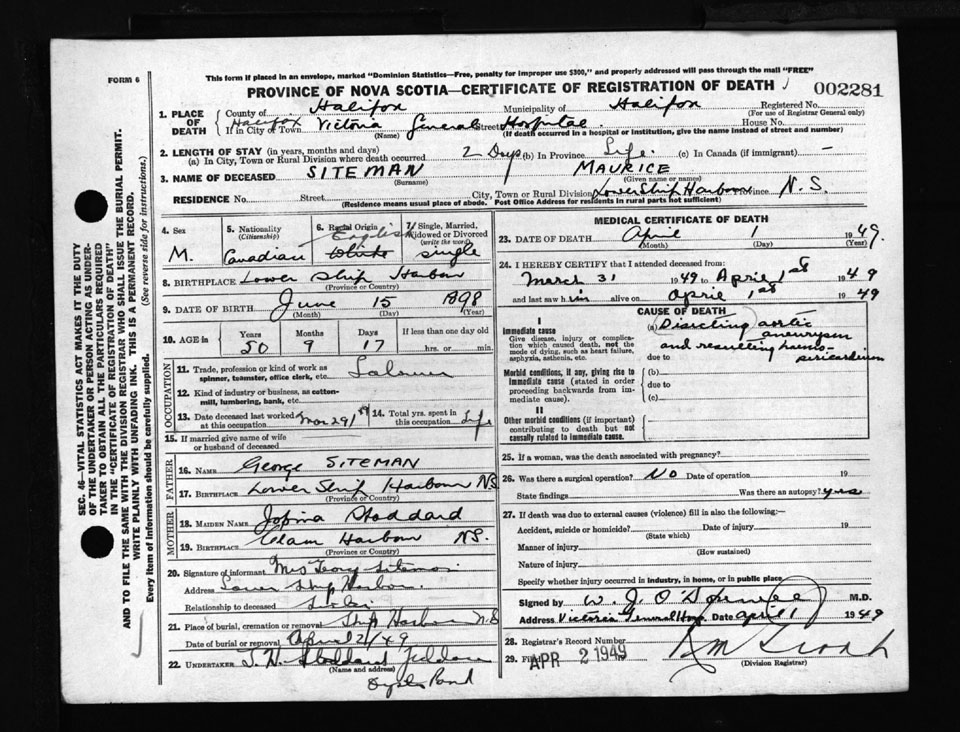 FORM 6
This form if placed in an envelope, marked "Dominion Statistics—Free, penalty for improper use $300," and properly addressed will pass through the mail "FREE"
PROVINCE OF NOVA SCOTIA—CERTIFICATE OF REGISTRATION OF DEATH
002281
1. PLACE OF DEATH
County of Halifax Municipality of Halifax Registered No.
(For use of Registrar General only)
If in City of Town Halifax Victoria General Street Hospital House No.
(Name) (If death occurred in a hospital or institution, give the name instead of street and number)
2. LENGTH OF STAY (in years, months and days)
(a) In City, Town or Rural Division where death occurred 2 Days (b) In Province Life. (c) In Canada (if immigrant) —
3. NAME OF DECEASED SITEMAN MAURICE
(Surname) (Given name or names)
RESIDENCE No. Street City, Town or Rural Division Lower Ship Harbour Province N.S.
(Residence means usual place of abode. Post Office Address for residents in rural parts not sufficient)
4. Sex
M.
5. Nationality
(Citizenship)
Canadian
6. Racial Origin
English
White
7. Single, Married, Widowed or Divorced
(write the word)
single
8. BIRTHPLACE Lower Ship Harbour
(Province or Country)
9. DATE OF BIRTH June 15 1898
(Month) (Day) (Year)
10. AGE in
Years Months Days If less than one day old
50 9 17 hrs. or min.
OCCUPATION
11. Trade, profession or kind of work as spinner, teamster, office clerk, etc. Labourer
12. Kind of industry or business, as cotton-mill, lumbering, bank, etc.
13. Date deceased last worked at this occupation Mar 29/49
14. Total yrs. spent in this occupation Life
15. If married give name of wife or husband of deceased
FATHER
16. NAME George SITEMAN
17. BIRTHPLACE Lower Ship Harbour NS
(Province or Country)
MOTHER
18. MAIDEN NAME Stoddard
19. BIRTHPLACE Clam Harbour NS.
(Province or Country)
20. Signature of informant Mrs Siteman
Address Lower Ship Harbour.
Relationship to deceased
21. Place of burial, cremation or removal Ship Harbour N.S
Date of burial or removal April 2/49
22. UNDERTAKER Stoddard
(Name and address)
Oyster Pond
MEDICAL CERTIFICATE OF DEATH
23. DATE OF DEATH April 1 1949.
(Month) (Day) (Year)
24. I HEREBY CERTIFY that I attended deceased from:
March 31 1949 to April 1st 1949
and last saw him alive on April 1st 1949
CAUSE OF DEATH
I
Immediate cause
Give disease, injury or complication which caused death, not the mode of dying, such as heart failure, asphyxia, asthenia, etc.
(a) Disecting aortic aneurysm
and resulting hemo-
pericardium
due to
Morbid conditions, if any, giving rise to immediate cause (stated in order proceeding backwards from immediate cause).
(b)
due to
(c)
II
Other morbid conditions (if important) contributing to death but not causally related to immediate cause.
25. If a woman, was the death associated with pregnancy?
26. Was there a surgical operation? No Date of operation 19
State findings Was there an autopsy? yes
27. If death was due to external causes (violence) fill in also the following:—
Accident, suicide or homicide? Date of injury 19
(State which)
Manner of injury
(How sustained)
Nature of injury
Specify whether injury occurred in industry, in home, or in public place
Signed by W. J. O'Donnell M.D.
Address Victoria General Hosp. Date April 1 1949
28. Registrar's Record Number
29. Filed APR 2 1949
(Division Registrar)
SEC. 46—VITAL STATISTICS ACT MAKES IT THE DUTY
OF THE UNDERTAKER OR PERSON ACTING AS UNDER-
TAKER TO OBTAIN ALL THE PARTICULARS REQUIRED
IN THE "CERTIFICATE OF REGISTRATION OF DEATH"
AND TO FILE THE SAME WITH THE DIVISION REGISTRAR WHO SHALL ISSUE THE BURIAL PERMIT.
WRITE PLAINLY WITH UNFADING INK. THIS IS A PERMANENT RECORD.
Every item of information should be carefully supplied. (See reverse side for instructions.)